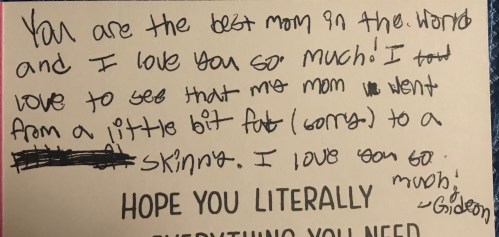 You are the best mom in the world
and I love you so much! I
love to see that my mom went
from a little bit fat (sorry) to a
skinny. I love you so
much!
~Gideon
HOPE YOU LITERALLY
EVERYTHING YOU NEED